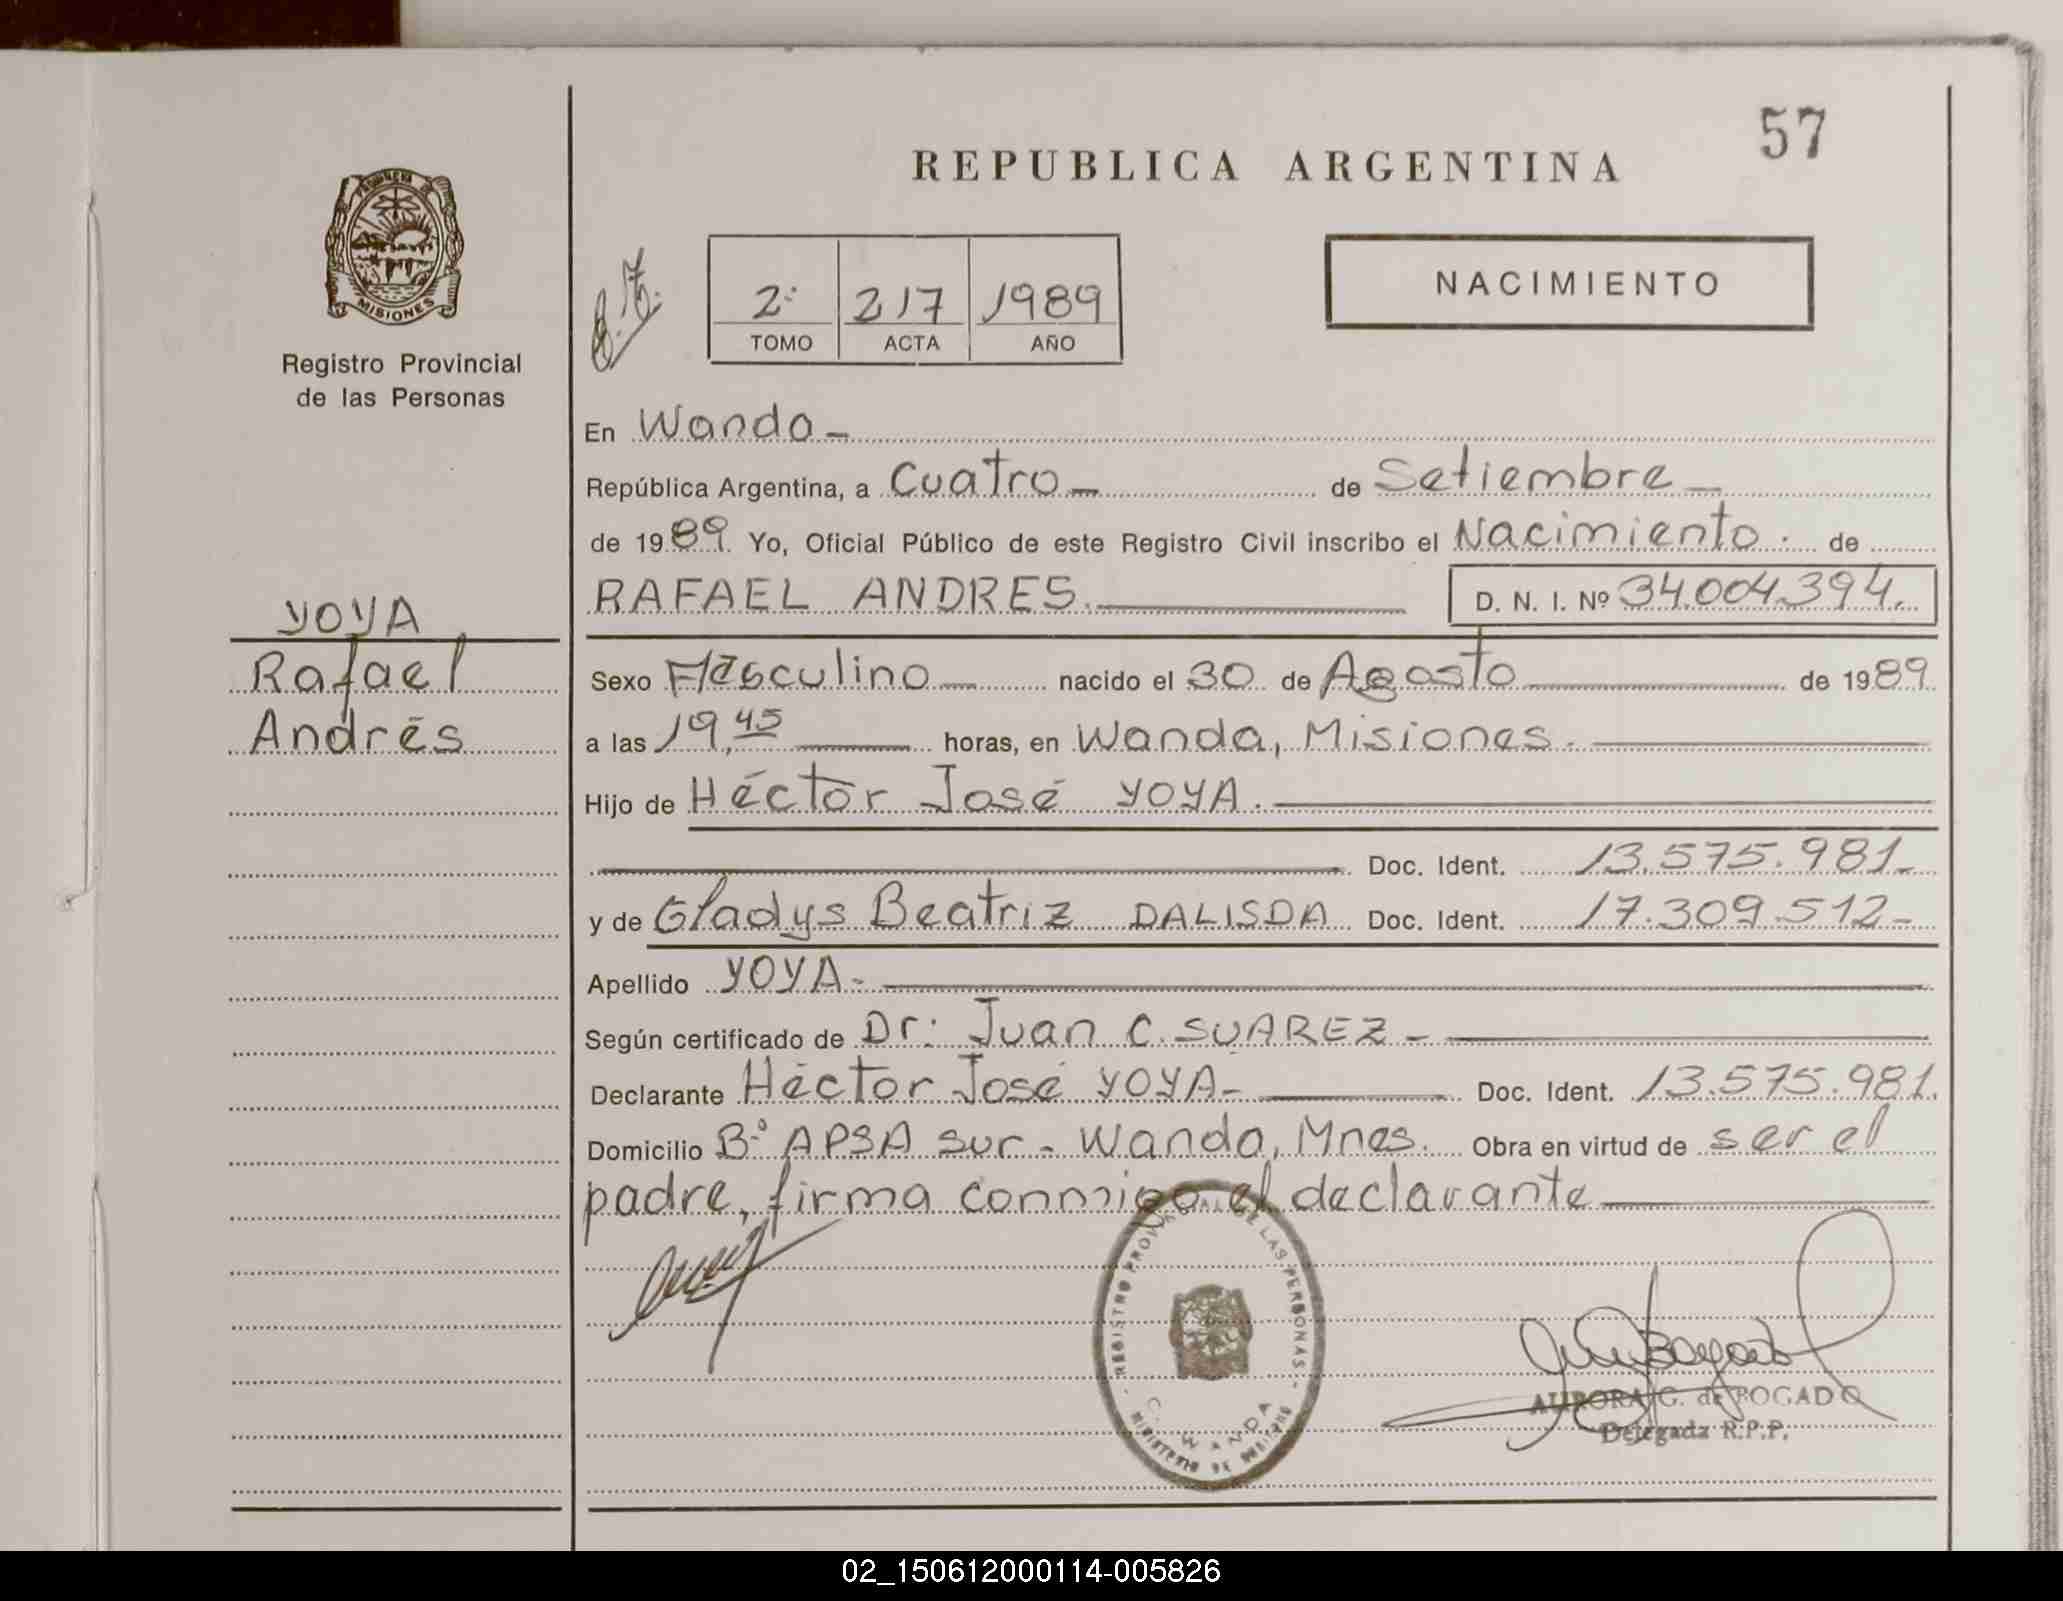 57
REPUBLICA ARGENTINA
MISIONES
Registro Provincial
de las Personas
2º 217 1989
TOMO ACTA AÑO
NACIMIENTO
En Wanda -
República Argentina, a Cuatro - de Setiembre -
de 1989. Yo, Oficial Público de este Registro Civil inscribo el Nacimiento. de
RAFAEL ANDRES. D. N. I. Nº 34.004.394.
YOYA
Rafael
Andrés
Sexo Masculino nacido el 30 de Agosto de 1989
a las 19,45 horas, en Wanda, Misiones.
Hijo de Héctor José YOYA.
Doc. Ident. 13.575.981-
y de Gladys Beatriz DALISDA Doc. Ident. 17.309.512-
Apellido YOYA-
Según certificado de Dr: Juan C. SUAREZ -
Declarante Héctor José YOYA- Doc. Ident. 13.575.981.
Domicilio Bº APSA sur - Wanda, Mnes. Obra en virtud de ser el
padre, firma conmigo el declarante
REGISTRO PROVINCIAL DE LAS PERSONAS
WANDA
MINISTERIO DE GOBIERNO
AURORA G. de BOGADO
Delegada R.P.P.
02_150612000114-005826